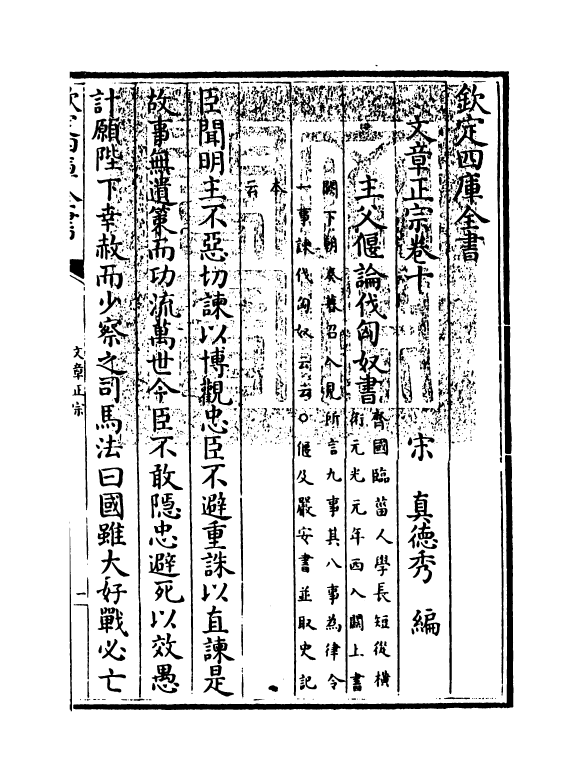 欽定四庫全書
文章正宗卷十　宋　真德秀　編
主父偃論伐匈奴書
齊國臨菑人學長短從橫
術元光元年西入關上書
闕下朝奏暮召入見所言九事其八事為律令
一事諫伐匈奴云云○偃及嚴安書並取史記
本
云
臣聞明主不惡切諫以博觀忠臣不避重誅以直諫是
故事無遺策而功流萬世今臣不敢隱忠避死以效愚
計願陛下幸赦而少察之司馬法曰國雖大好戰必亡
文章正宗
一